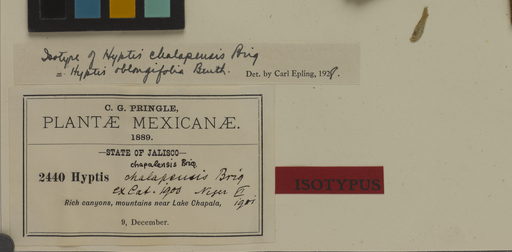 Isotype of Hyptis chalapensis Briq
= Hyptis oblongifolia Benth.
Det. by Carl Epling, 192
C. G. PRINGLE,
PLANTÆ MEXICANÆ.
1889.
—STATE OF JALISCO—
chapalensis Briq.
2440 Hyptis chalapensis Briq
ex Cat. 1900
1901
Rich canyons, mountains near Lake Chapala,
9, December.
ISOTYPUS